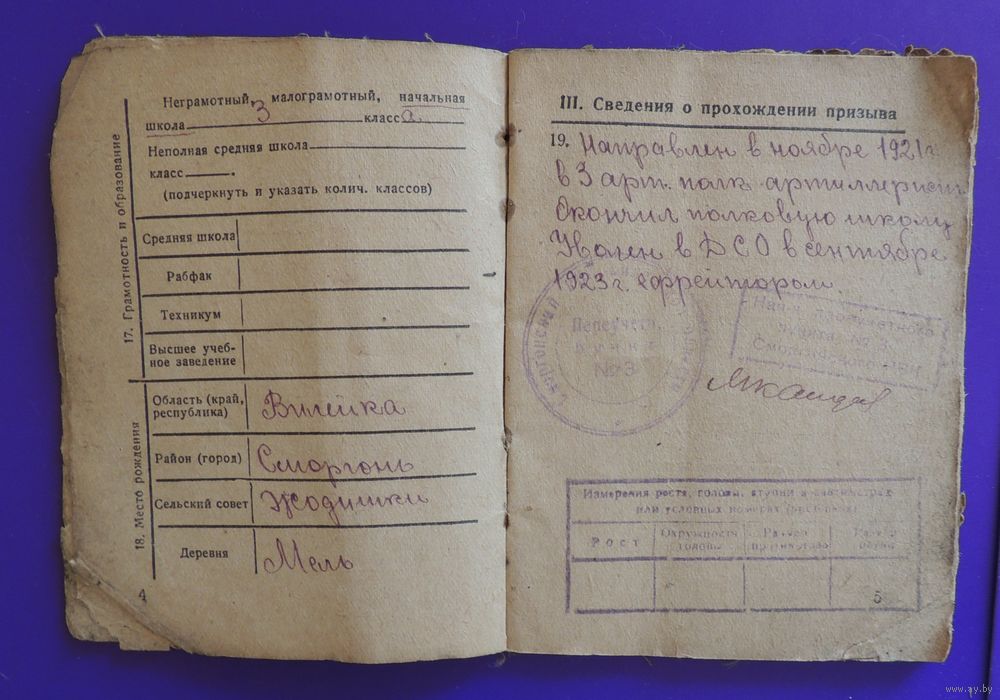 17. Грамотность и образование
Неграмотный, малограмотный, начальная
школа 3 класса
Неполная средняя школа
класс .
(подчеркнуть и указать колич. классов)
Средняя школа
Рабфак
Техникум
Высшее учеб-
ное заведение
18. Место рождения
Область (край,
республика)
Вилейка
Район (город) Сморгонь
Сельский совет Жодишки
Деревня Мель
4
III. Сведения о прохождении призыва
19. Направлен в ноябре 1921г.
в 3 арт. полк артиллерист
Окончил полковую школу
Уволен в ДСО в сентябре
1923г. ефрейтором.
Переучетн.
пункт
№3
Нач-к переучетного
пункта № 3
Измерения роста, головы, ступни в сантиметрах
или условных номерах
Рост
Окружность
головы
Размер
противогаза
Размер
обуви
5
www.ay.by